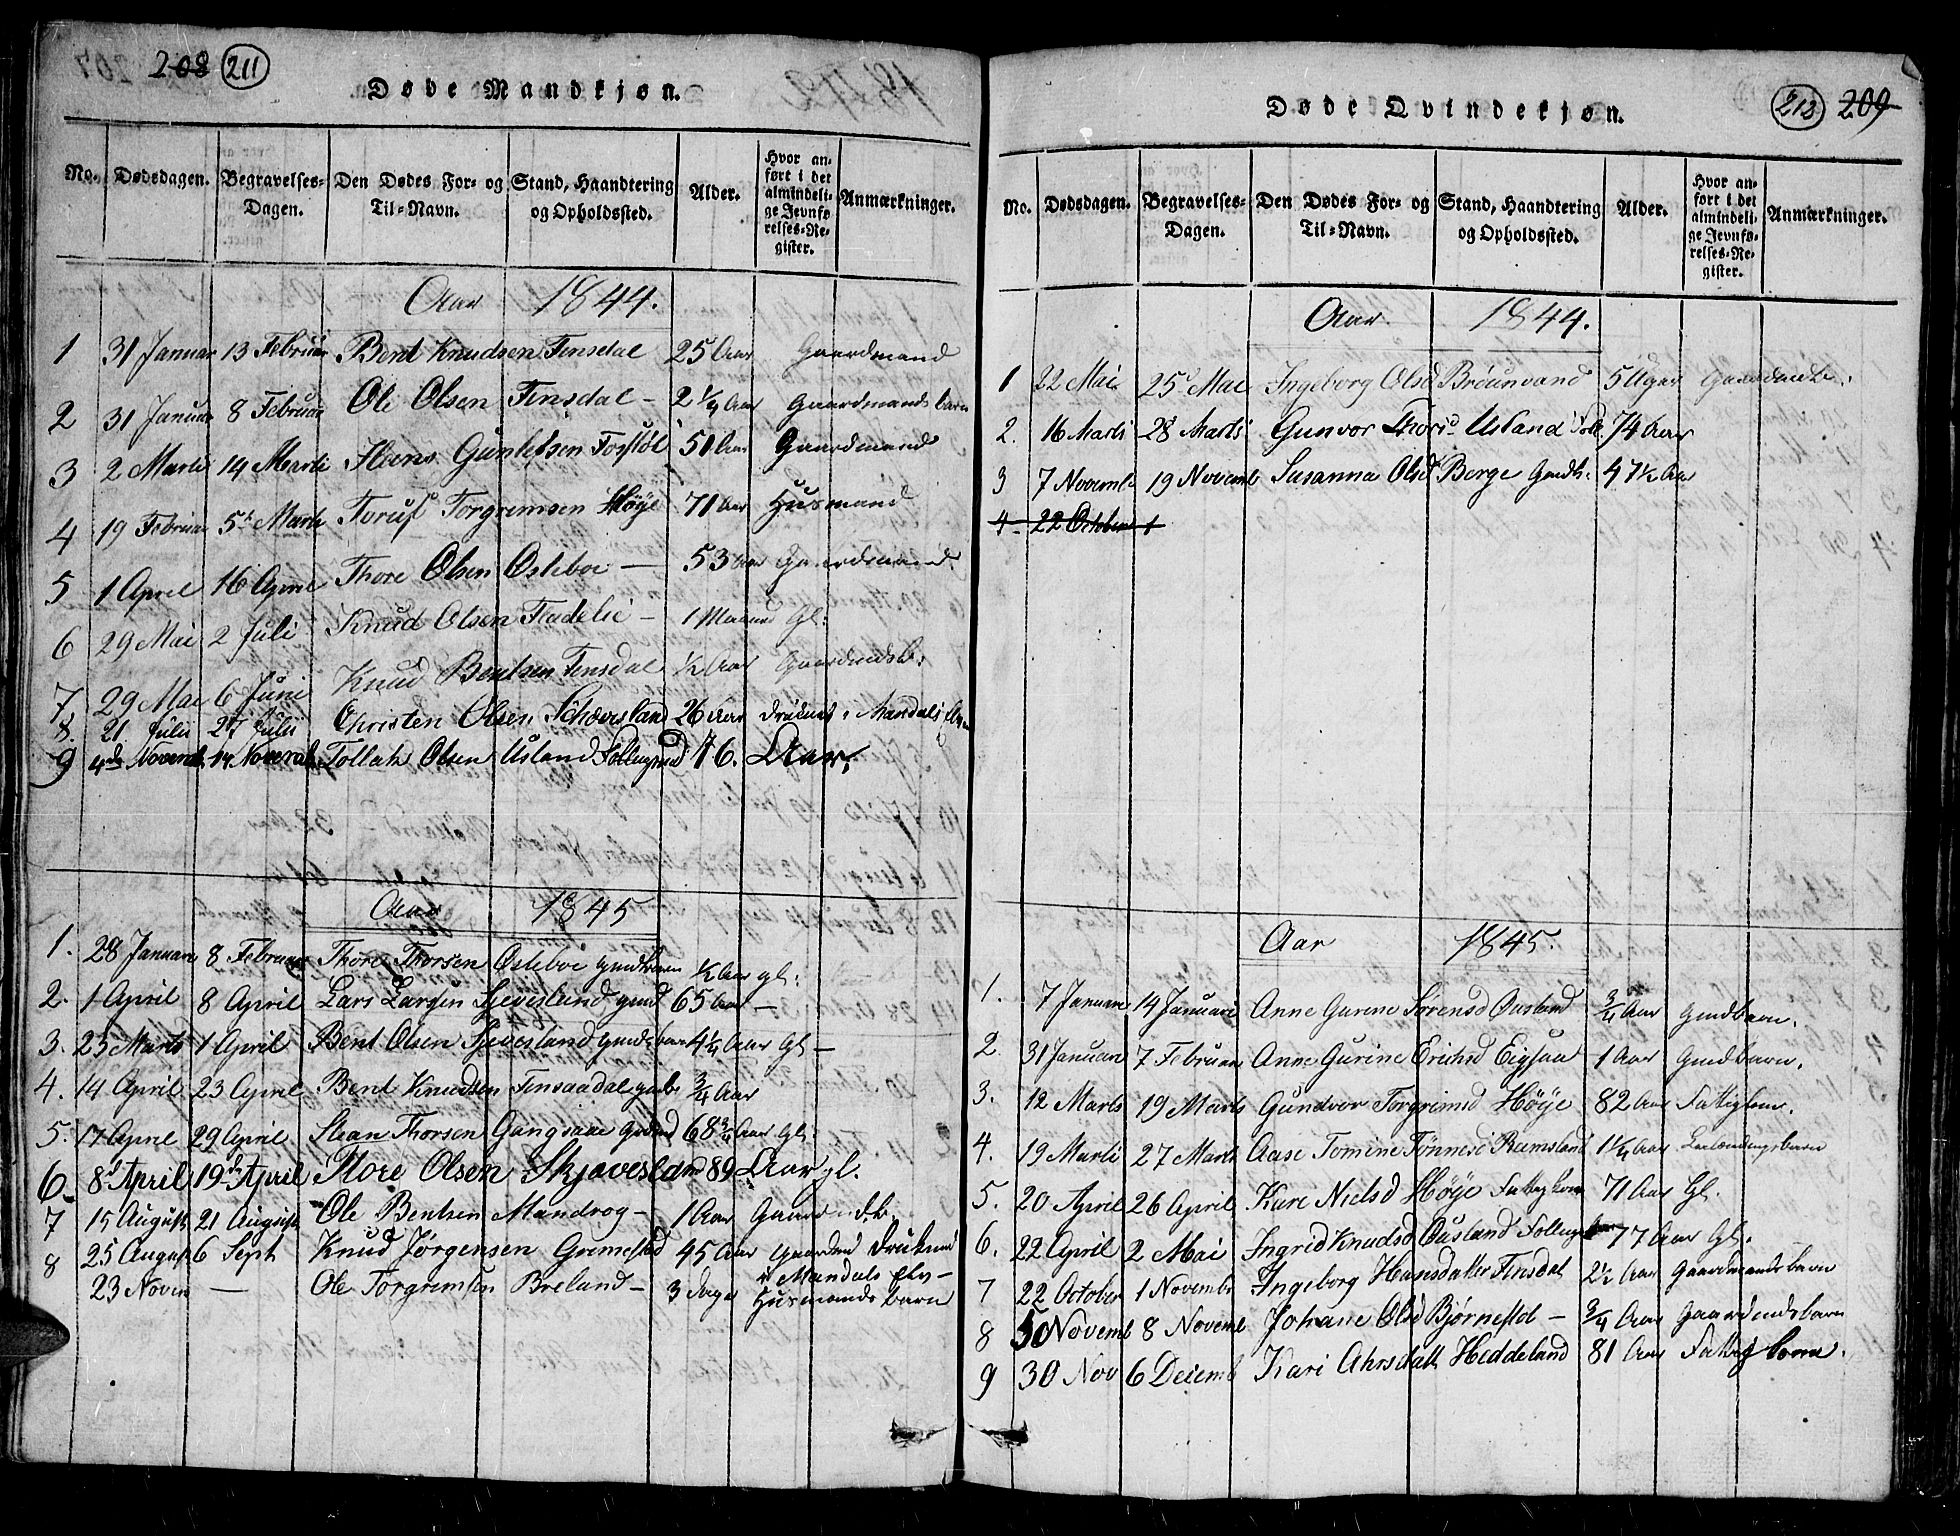 208 211
Døde Mandkjøn.
No. Dødsdagen. Begravelses-Dagen. Den Dødes For- og Til-Navn. Stand, Haandtering og Opholdssted. Alder. Hvor anført i det almindelige Jevnførelses-Register. Anmærkninger.
Aar 1844.
1 31 Januar 13 Februar Bent Knudsen Finsdal 25 Aar Gaardmand
2 31 Januar 8 Februar Ole Olsen Finsdal - 2 1/4 Aar Gaardmands barn
3 2 Marti 14 Marti Hans Gunlefsen 51 Aar Gaardmand
4 19 Februar 5te Marti Torgrimsen Høye 71 Aar Husmand
5 1 April 16 April Thore Olsen Osteboe - 53 Aar Gaardmand
6 29 Mai 2 Juli Knud Olsen Fladelie - 1 Maaned Gl:
7 29 Mai 6 Juni Knud Bentsen Finsdal 1/2 Aar Gaardmdsb:
8. 21 Julii 27 Julii Christen Olsen Skjævesland 26 Aar druknet i Mandals Elv
9 4de Novemb. 14 Novemb. Tollak Olsen Usland 76. Aar.
Aar 1845
1. 28 Januar 8 Februar Thore Thorsen Osteboe gmdbarn 1/2 Aar gl:
2. 1 April 8 April Lars Larsen Sjevesland gmd 65 Aar -
3. 23 Marts 1 April Bent Olsen Sjevesland gmdsbarn 4 1/4 Aar Gl -
4. 14 April 23 April Bent Knudsen Finsaadal gmb 3/4 Aar
5. 17 April 29 April Stean Thorsen Gangsaae 68 3/4 Aar Gl:
6 8d April 19d April Thore Olsen Skjævesland 89 Aar gl.
7 15 August 21 August Ole Bentsen Mandrog - 1 Aar Gaardmdb.
8 25 August 6 Sept Knud Jørgensen Grimestad 45 Aar Gaardmd Druknet i Mandals Elv -
23 Novem — Ole Torgrimsen Breland - 3 Dage Husmands barn
212 209
Døde Qvindekjøn.
No. Dødsdagen. Begravelses-Dagen. Den Dødes For- og Til-Navn. Stand, Haandtering og Opholdssted. Alder. Hvor anført i det almindelige Jevnførelses-Register. Anmærkninger.
Aar 1844.
1 22 Mai 25 Mai Ingeborg Olsd Brøunvand 5 Uger Gaardmdb:
2. 16 Marts 28 Marts Gunvor Thorsd Usland 74 Aar
3 7 Novemb 19 Novemb Susanna Olsd Berge Gmdk. 47 1/2 Aar
4 22 October 1
Aar 1845.
1. 7 Januar 14 Januar Anne Gurine Sørensd Øusland 3/4 Aar Gmdbarn.
2. 31 Januar 7 Februar Anne Gurine Erichsd Eigsaa 1 Aar Gmdbarn.
3. 12 Marts 19 Marts Gundvor Torgrimsd Høye 82 Aar Fattiglem.
4. 19 Marti 27 Marts Aase Tomine Tønnesd Ramsland 1 1/4 Aar Leilændingsbarn
5. 20 April 26 April Kare Nielsd Høye Fattiglem 71 Aar Gl.
6. 22 April 2 Mai Ingrid Knudsd Øusland 77 Aar Gl.
7 22 October 1 Novemb Ingeborg Hansdatter Finsdal 2 1/2 Aar Gaardmandsbarn
8 30 Novemb 8 Novemb Johane Olsd Bjørnestd - 3/4 Aar Gaardmdsbarn
9 30 Nov 6 Decemb Kari Ahrsdatt Heddeland 81 Aar Fattig